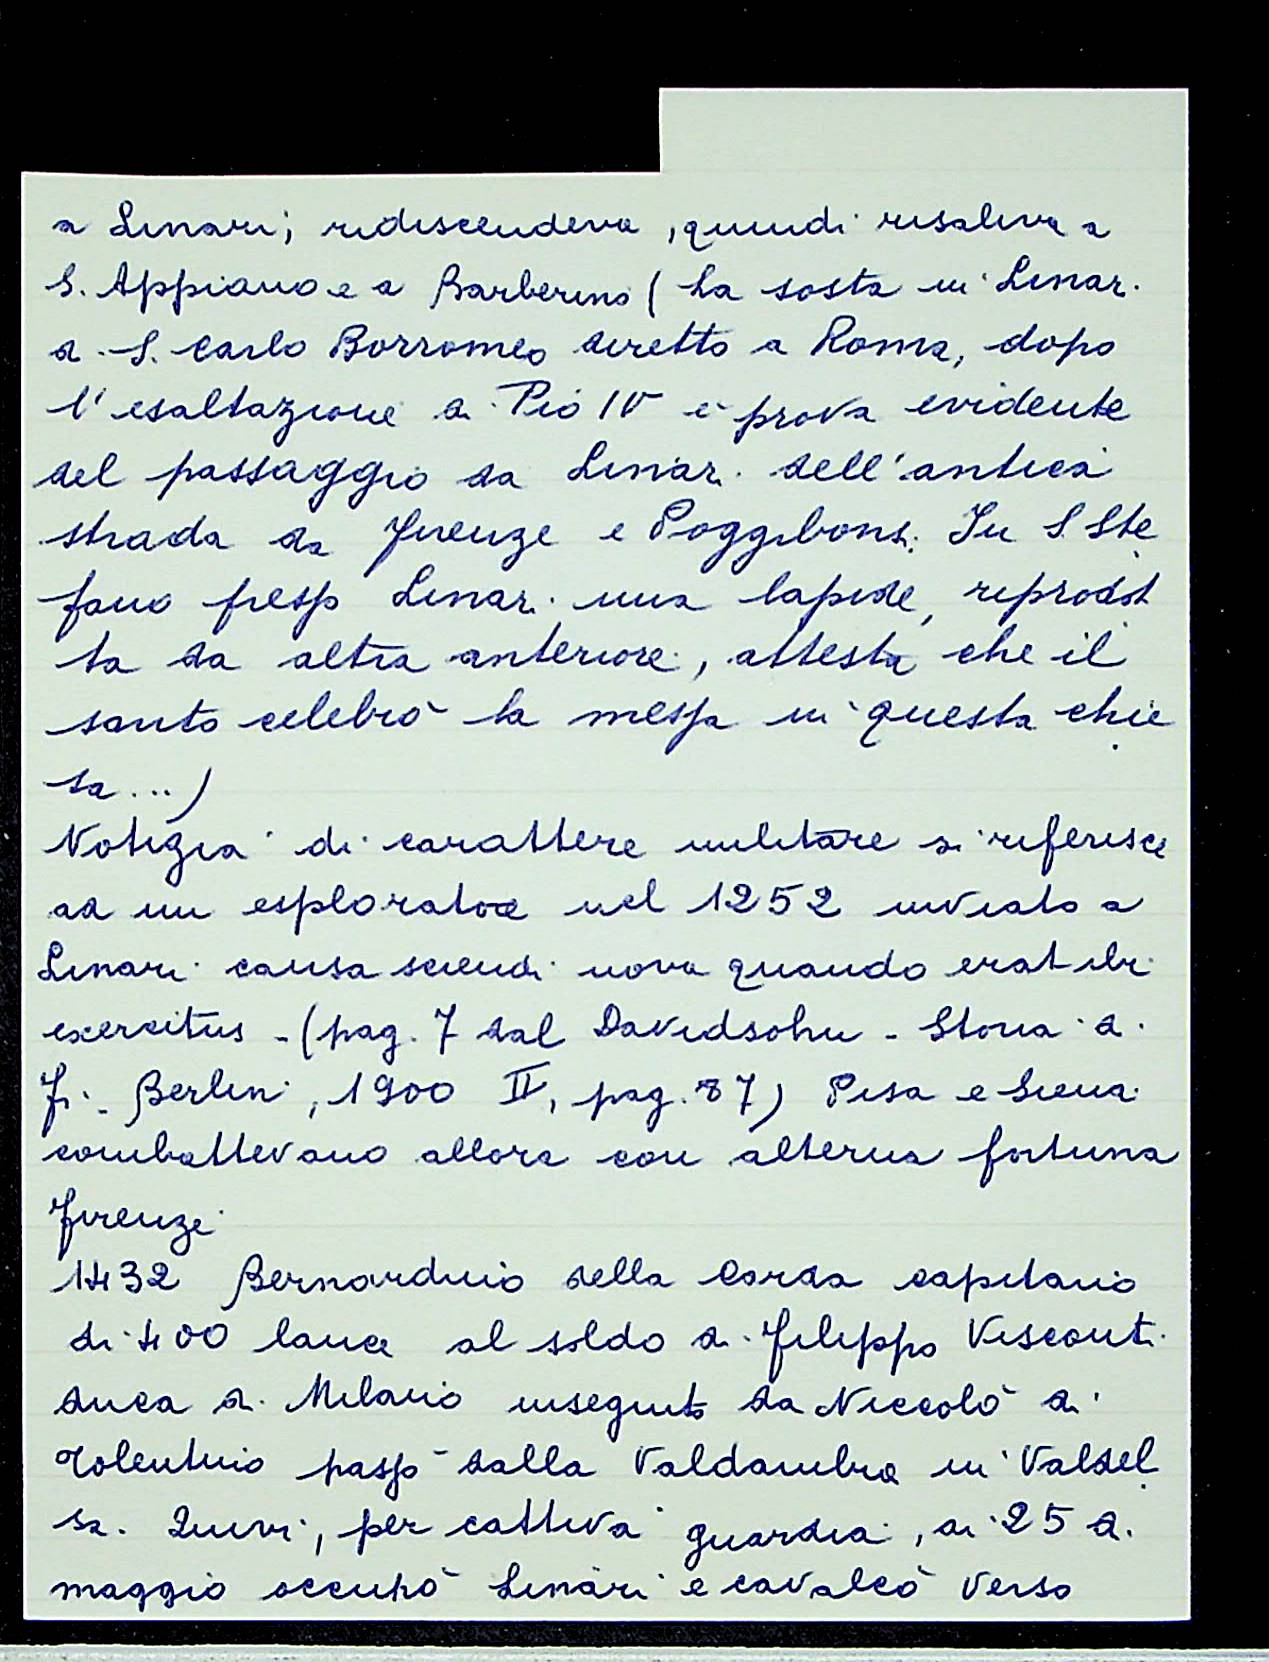 a Linari; ridiscendeva, quindi risaliva a
S. Appiano e a Barberino (la sosta in Linari
di S. Carlo Borromeo diretto a Roma, dopo
l'esaltazione di Pio IV è prova evidente
del passaggio da Linari dell'antica
strada da Firenze e Poggibonsi. In S. Ste
fano presso Linari una lapide, riprodot
ta da altra anteriore, attesta che il
santo celebrò la messa in questa chie
sa...)
Notizia di carattere militare si riferisce
ad un esploratore nel 1252 inviato a
Linari causa sciendi nova quando erat ibi
exercitus - (pag. 7 dal Davidsohn - Storia di
Fi. - Berlin, 1900 II, pag. 87) Pisa e Siena
combattevano allora con alterna fortuna
Firenze
1432 Bernardino della Corda capitano
di 400 lance al soldo di Filippo Visconti
duca di Milano inseguito da Niccolò di
Tolentino passò dalla Valdambra in Valdel
sa. Quivi, per cattiva guardia, ai 25 di
maggio occupò Linari e cavalcò verso